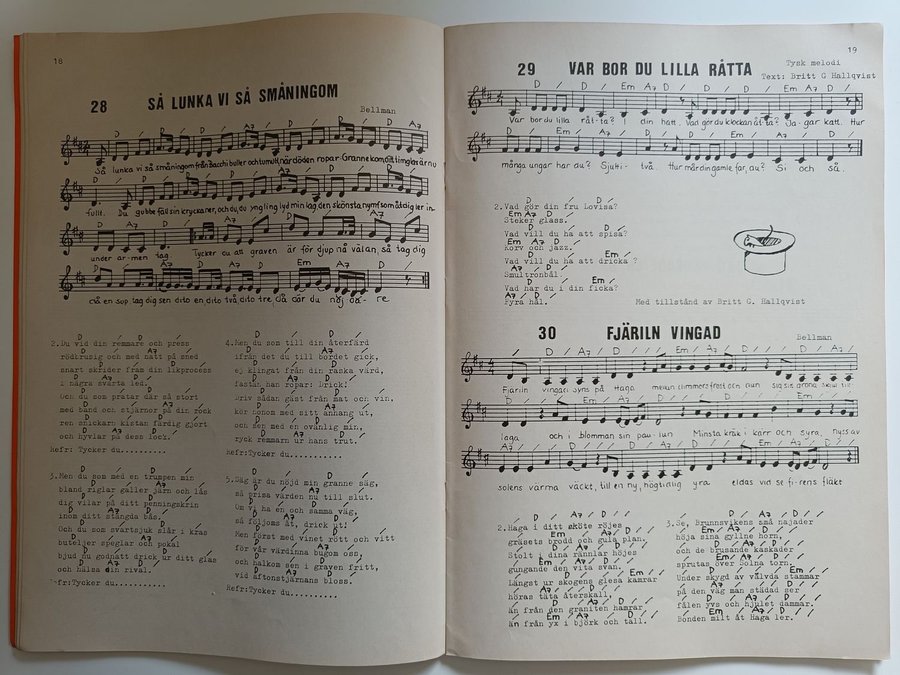 18
28 SÅ LUNKA VI SÅ SMÅNINGOM
Bellman
D D A7 D D A7 D
Så lunka vi så småningom från Bacchi buller och tumult, när döden ropar Granne kom, ditt timglas är nu
fullt. Du gubbe fäll din krycka ner, och du, du yngling lyd min lag, den skönsta nymf som åt dig ler in-
under armen tag. Tycker du att graven är för djup nå välan, så tag dig
då en sup, tag dig sen dito en dito två dito tre, då dör du nöjdare.
2.Du vid din remmare och press
rödbrusig och med hatt på sned
snart skrider fram din likprocess
i några svarta led.
Och du som pratar där så stort
med band och stjärnor på din rock
ren snickarn kistan färdig gjort
och hyvlar på dess lock.
Refr:Tycker du..........
3.Men du som med en trumpen min
bland riglar galler järn och lås
dig vilar på ditt penningskrin
inom ditt stängda bås.
Och du som svartsjuk slår i kras
buteljer speglar och pokal
bjud nu godnatt drick ur ditt glas
och hälsa din rival.
Refr:Tycker du..........
4.Men du som till din återfärd
ifrån det du till bordet gick,
ej klingat från din raska värd,
fastän han ropar: Drick!
Driv sådan gäst från mat och vin,
kör honom med sitt anhang ut,
och sen med en ovänlig min,
ryck remmarn ur hans trut.
Refr:Tycker du..........
5.Säg är du nöjd min granne säg,
så prisa värden nu till slut.
Om vi ha en och samma väg,
så följoms åt, drick ut!
Men först med vinet rött och vitt
för vår värdinna bugom oss,
och halkom sen i graven fritt,
vid aftonstjärnans bloss.
Refr:Tycker du..........
19
29 VAR BOR DU LILLA RÅTTA
Tysk melodi
Text: Britt G Hallqvist
Var bor du lilla råt-ta? I din hatt. Vad gör du klockan åt-ta? Ja-gar katt. Hur
många ungar har du? Sjutti-två. Hur mår din gamle far, du? Si och så.
2.Vad gör din fru Lovisa?
Steker glass.
Vad vill du ha att spisa?
Korv och jazz.
Vad vill du ha att dricka ?
Smultronbål.
Vad har du i din ficka?
Fyra hål.
Med tillstånd av Britt G. Hallqvist
30 FJÄRILN VINGAD
Bellman
Fjäriln vingad syns på Haga mellan dimmors frost och dun sig sitt gröna skjul till-
laga och i blomman sin pau-lun Minsta kräk i kärr och syra, nyss av
solens värma väckt, till en ny, högtidlig yra eldas vid sefirens fläkt
2.Haga i ditt sköte röjes
gräsets brodd och gula plan.
Stolt i dina rännlar höjes
gungande den vita svan.
Längst ur skogens glesa kamrar
höras täta återskall,
än från den graniten hamrar
än från yx i björk och tall.
3.Se, Brunnsvikens små najader
höja sina gyllne horn,
och de brusande kaskader
sprutas över Solna torn.
Under skygd av välvda stammar
på den väg man städad ser
fålen yvs och hjulet dammar.
Bonden milt åt Haga ler.